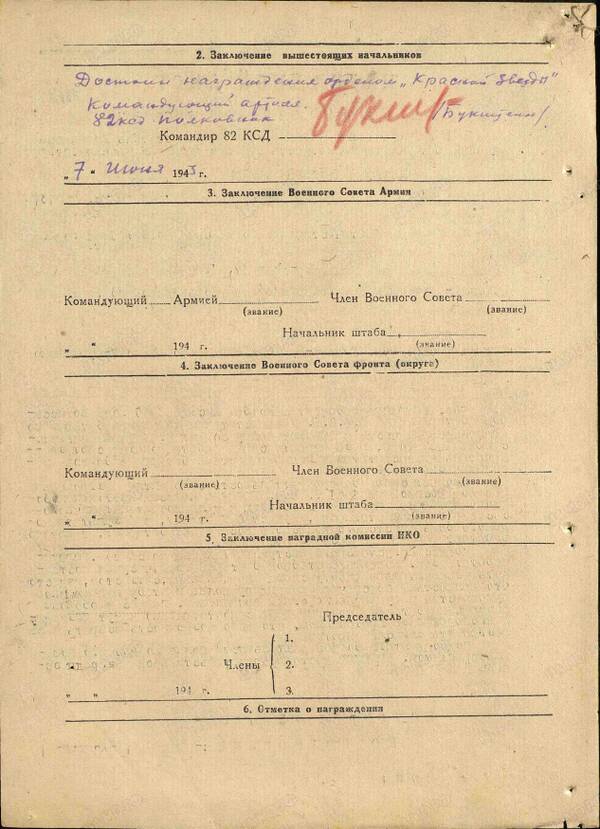 2. Заключение вышестоящих начальников
Достоин награждения орденом „Красной Звезды"
Командующий артил.
82 ксд полковник
Командир 82 КСД
„7" Июня 1943 г.
3. Заключение Военного Совета Армии
Командующий Армией Член Военного Совета
(звание) (звание)
Начальник штаба
„ “ 194 г. (звание)
4. Заключение Военного Совета фронта (округа)
Командующий Член Военного Совета
(звание) (звание)
Начальник штаба
„ “ 194 г. (звание)
5. Заключение наградной комиссии НКО
Председатель
1.
Члены 2.
„ “ 194 г. 3.
6. Отметка о награждении